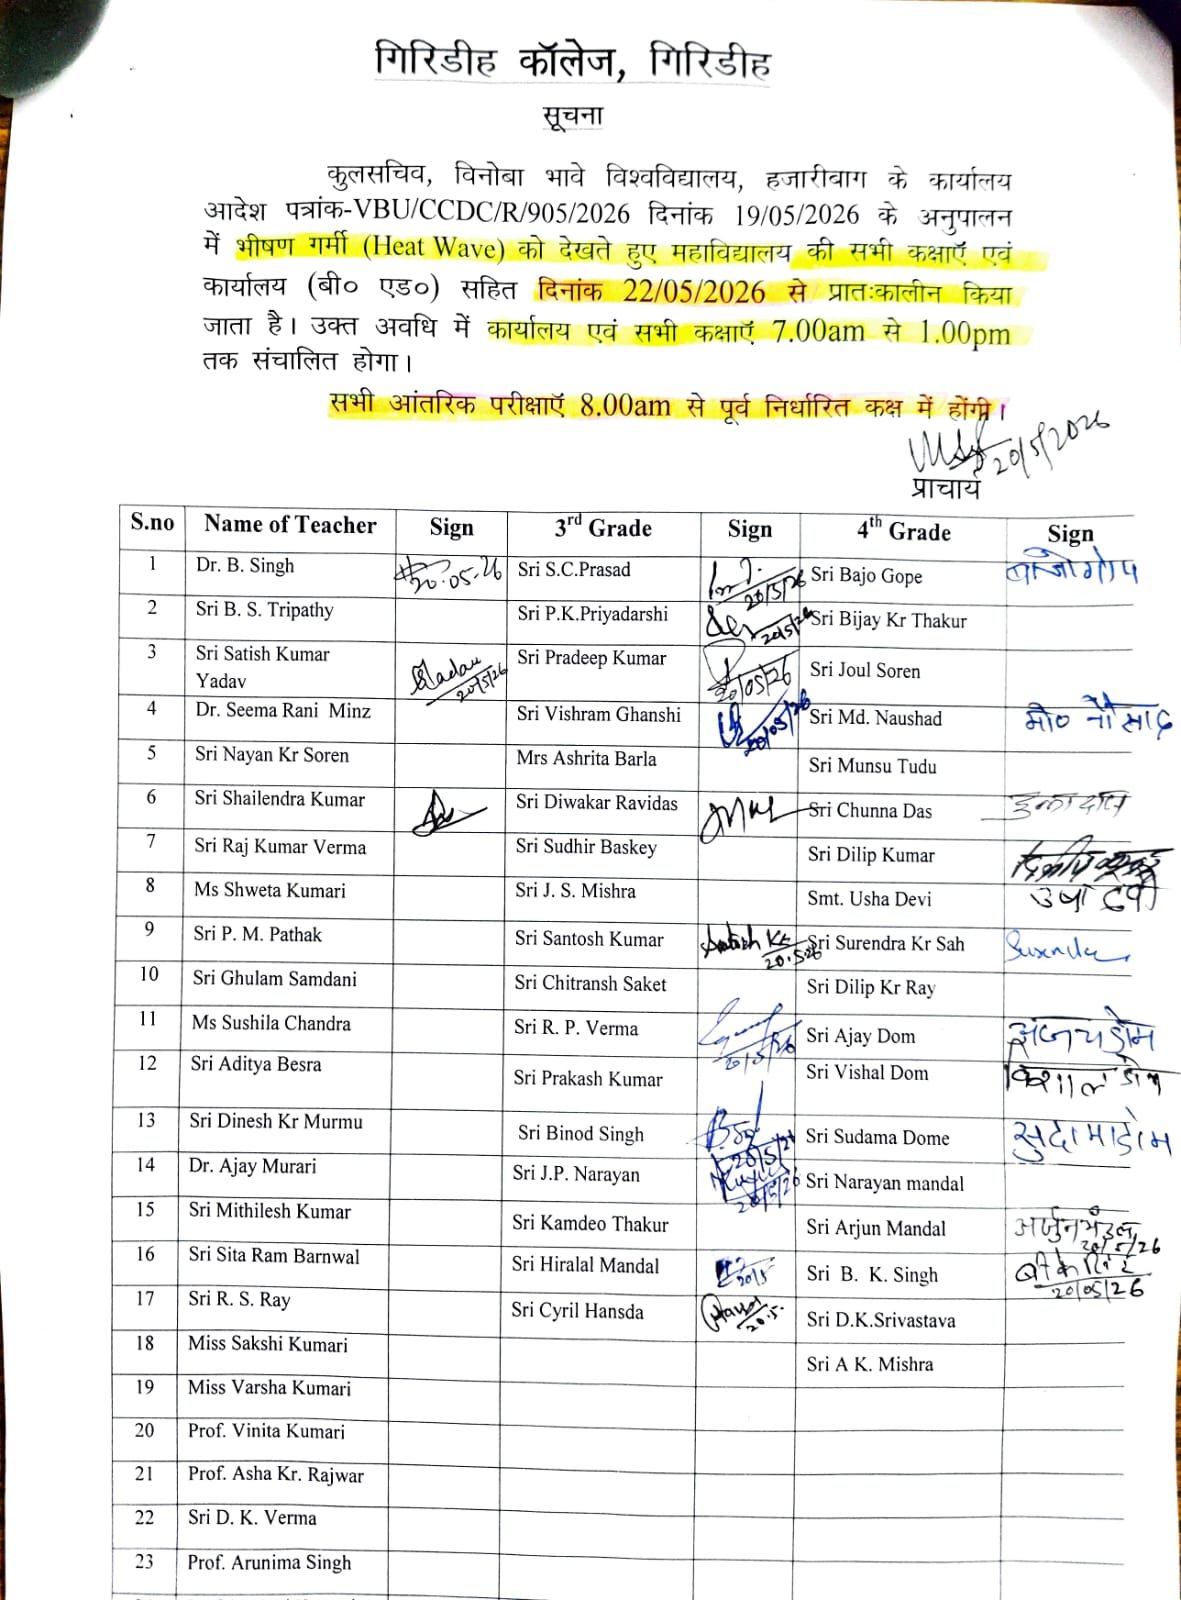 गिरिडीह कॉलेज, गिरिडीह
सूचना
कुलसचिव, विनोबा भावे विश्वविद्यालय, हजारीबाग के कार्यालय
आदेश पत्रांक-VBU/CCDC/R/905/2026 दिनांक 19/05/2026 के अनुपालन
में भीषण गर्मी (Heat Wave) को देखते हुए महाविद्यालय की सभी कक्षाएँ एवं
कार्यालय (बी० एड०) सहित दिनांक 22/05/2026 से प्रातःकालीन किया
जाता है। उक्त अवधि में कार्यालय एवं सभी कक्षाएँ 7.00am से 1.00pm
तक संचालित होगा।
सभी आंतरिक परीक्षाएँ 8.00am से पूर्व निर्धारित कक्ष में होंगी।
20/5/2026
प्राचार्य
S.no Name of Teacher Sign 3rd Grade Sign 4th Grade Sign
1 Dr. B. Singh 20.05.26 Sri S.C.Prasad 20/5/26 Sri Bajo Gope बाजो गोप
2 Sri B. S. Tripathy Sri P.K.Priyadarshi 20/5/26 Sri Bijay Kr Thakur
3 Sri Satish Kumar Yadav Yadav 20/5/26 Sri Pradeep Kumar 20/05/26 Sri Joul Soren
4 Dr. Seema Rani Minz Sri Vishram Ghanshi 20/05/26 Sri Md. Naushad मो० नौसाद
5 Sri Nayan Kr Soren Mrs Ashrita Barla Sri Munsu Tudu
6 Sri Shailendra Kumar Sri Diwakar Ravidas Sri Chunna Das
7 Sri Raj Kumar Verma Sri Sudhir Baskey Sri Dilip Kumar
8 Ms Shweta Kumari Sri J. S. Mishra Smt. Usha Devi उषा देवी
9 Sri P. M. Pathak Sri Santosh Kumar Santosh Kr 20.5.26 Sri Surendra Kr Sah Surendra
10 Sri Ghulam Samdani Sri Chitransh Saket Sri Dilip Kr Ray
11 Ms Sushila Chandra Sri R. P. Verma 20/5/26 Sri Ajay Dom अजय डोम
12 Sri Aditya Besra Sri Prakash Kumar Sri Vishal Dom विशाल डोम
13 Sri Dinesh Kr Murmu Sri Binod Singh 20/5/26 Sri Sudama Dome सुदामा डोम
14 Dr. Ajay Murari Sri J.P. Narayan 20/5/26 Sri Narayan mandal
15 Sri Mithilesh Kumar Sri Kamdeo Thakur Sri Arjun Mandal अर्जुन मंडल 20/5/26
16 Sri Sita Ram Barnwal Sri Hiralal Mandal 20/5 Sri B. K. Singh 20/05/26
17 Sri R. S. Ray Sri Cyril Hansda 20.5. Sri D.K.Srivastava
18 Miss Sakshi Kumari Sri A K. Mishra
19 Miss Varsha Kumari
20 Prof. Vinita Kumari
21 Prof. Asha Kr. Rajwar
22 Sri D. K. Verma
23 Prof. Arunima Singh